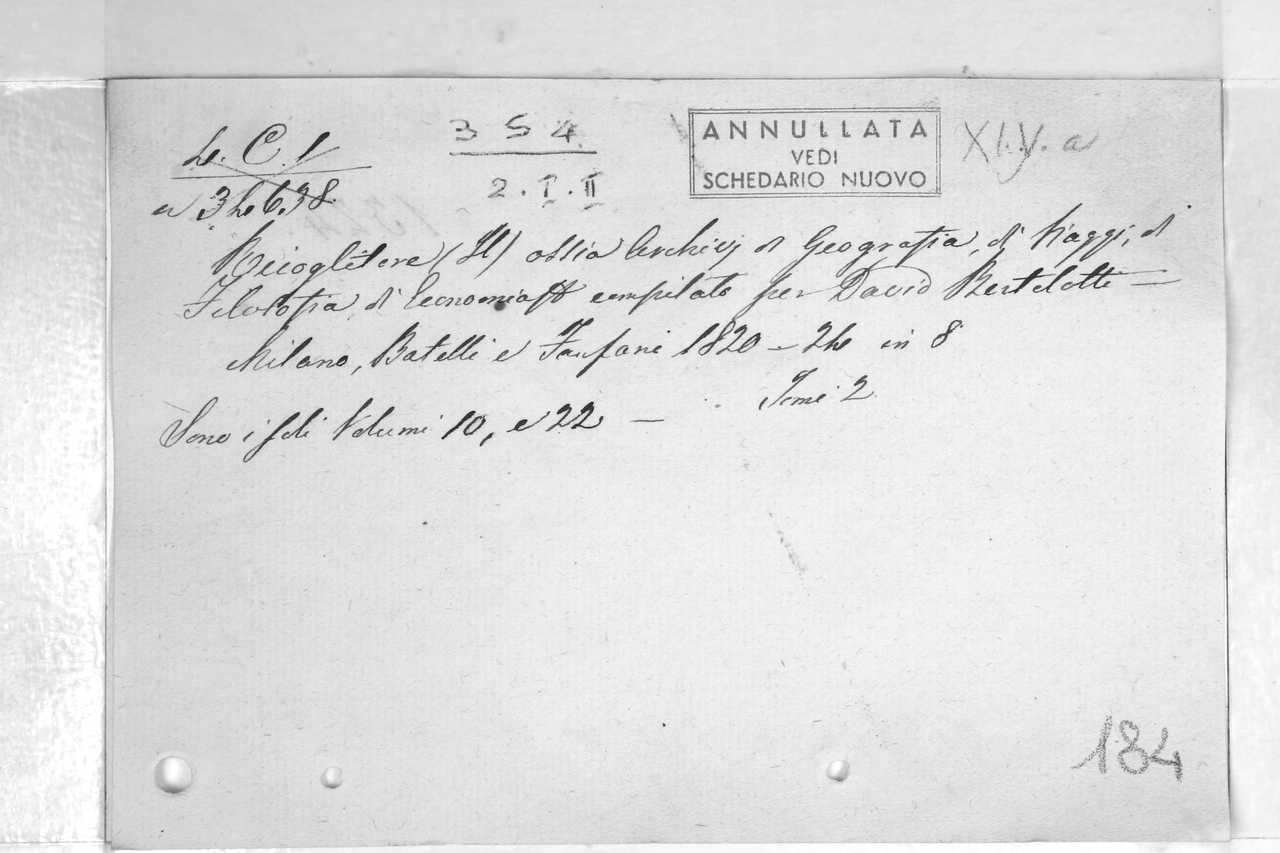 L. C. 1
a 3 Le 6.38.
3 S 4.
2. I. II
ANNULLATA
VEDI
SCHEDARIO NUOVO
XI.V. a
Raccoglitore (Il) ossia Archivj di Geografia, di Viaggi, di
Filosofia, di Economia compilato per David Bertolotti —
Milano, Batelli e Fanfani 1820 — 24 in 8°
Tomi 2
Sono i soli Volumi 10, e 22 —
184